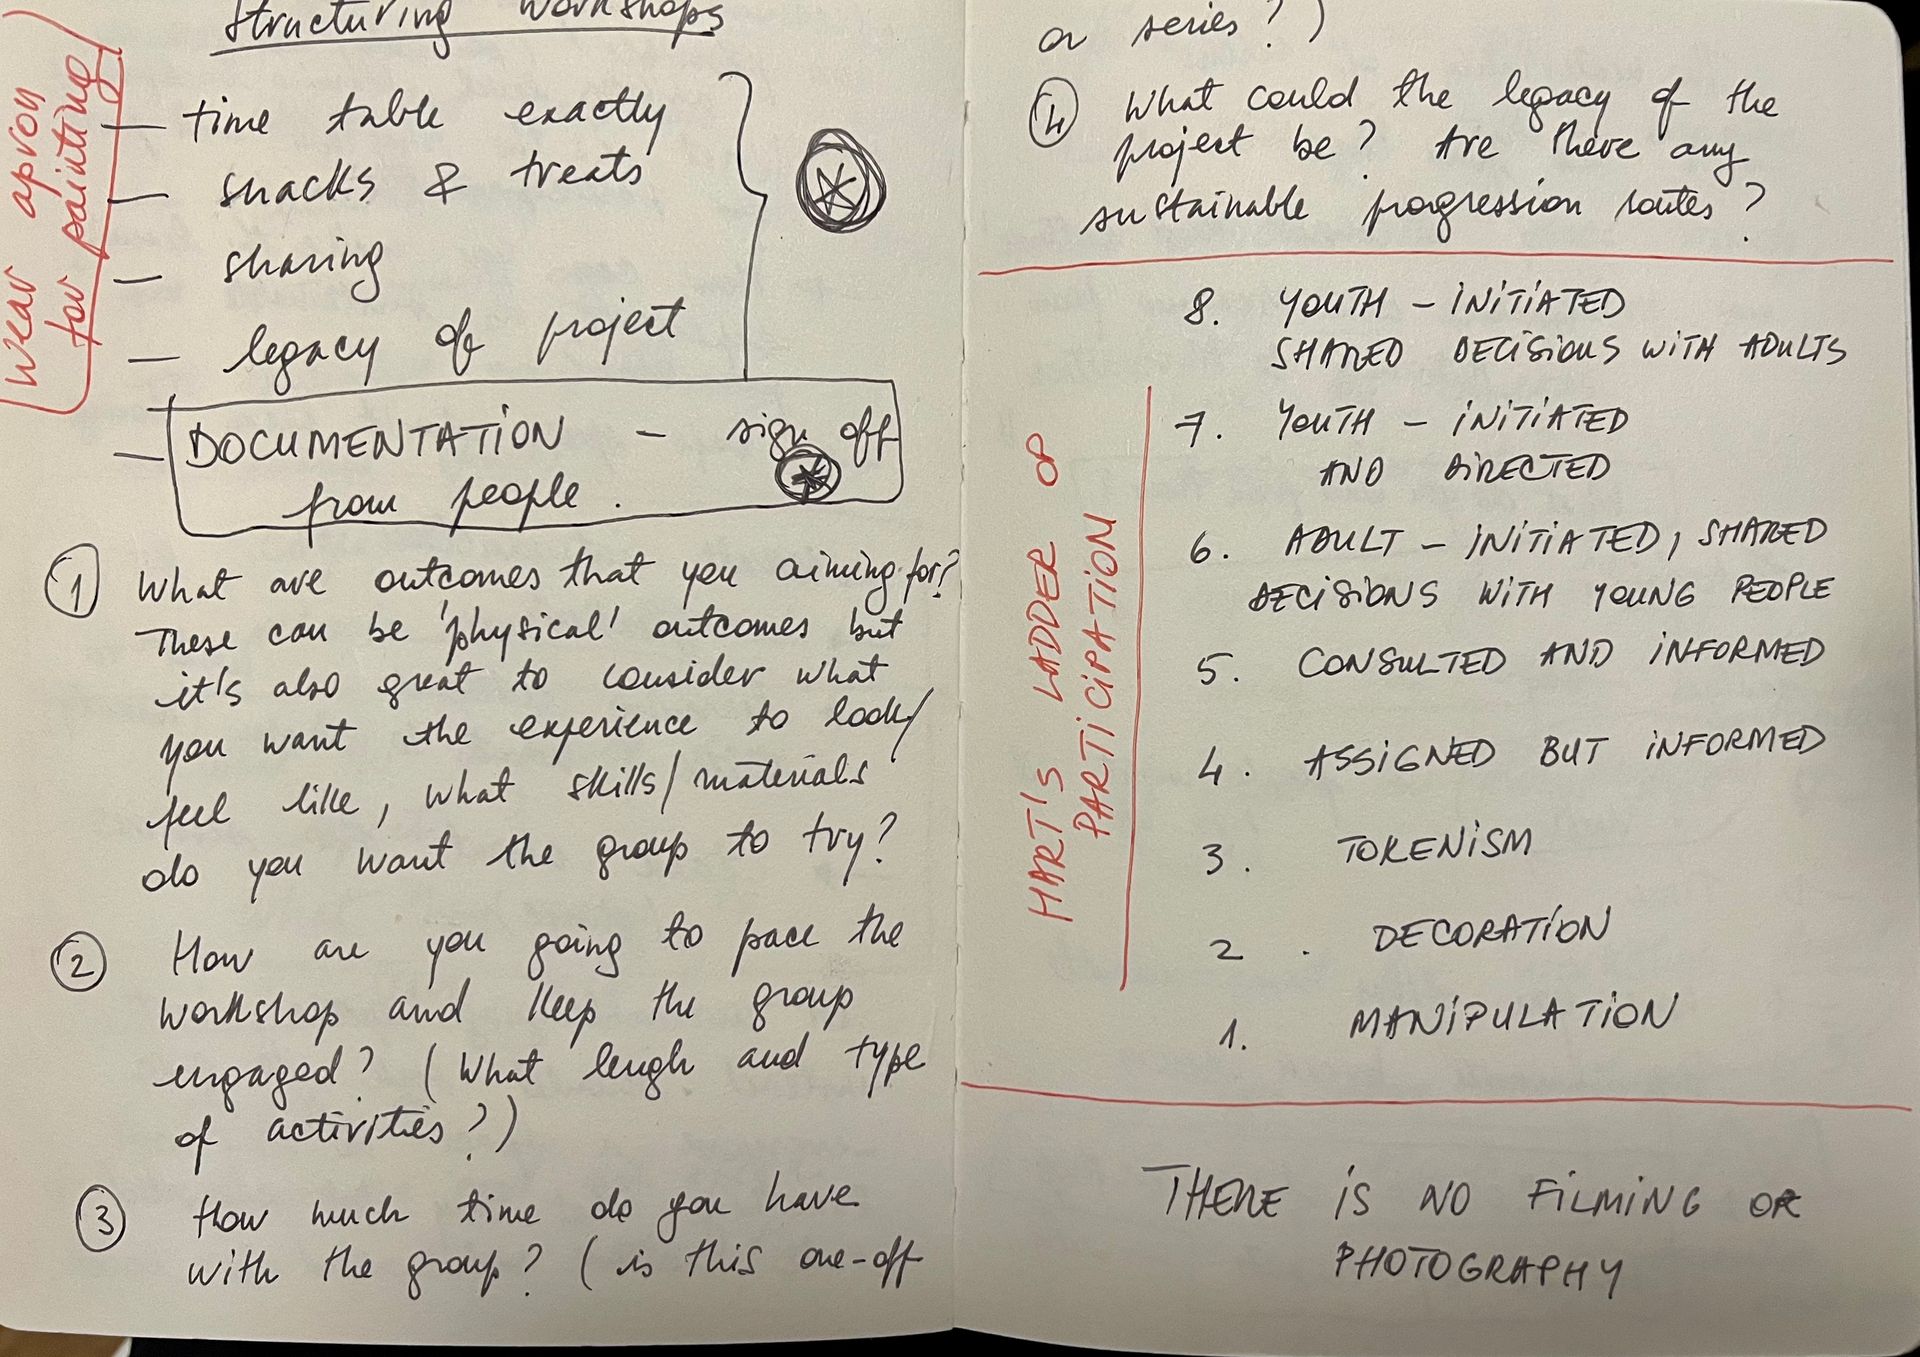 Structuring workshops
wear apron
for painting
— time table exactly
— snacks & treats
— sharing
— legacy of project
— DOCUMENTATION — sign off
from people.
1 What are outcomes that you aiming for?
These can be 'physical' outcomes but
it's also great to consider what
you want the experience to look/
feel like, what skills/materials
do you want the group to try?
2 How are you going to pace the
workshop and keep the group
engaged? (What lengh and type
of activities?)
3 How much time do you have
with the group? (is this one-off
or series?)
4 What could the legacy of the
project be? Are there any
sustainable progression routes?
HART'S LADDER OF
PARTICIPATION
8. YOUTH – INITIATED
SHARED DECISIONS WITH ADULTS
7. YOUTH – INITIATED
AND DIRECTED
6. ADULT – INITIATED, SHARED
DECISIONS WITH YOUNG PEOPLE
5. CONSULTED AND INFORMED
4. ASSIGNED BUT INFORMED
3. TOKENISM
2. DECORATION
1. MANIPULATION
THERE IS NO FILMING OR
PHOTOGRAPHY